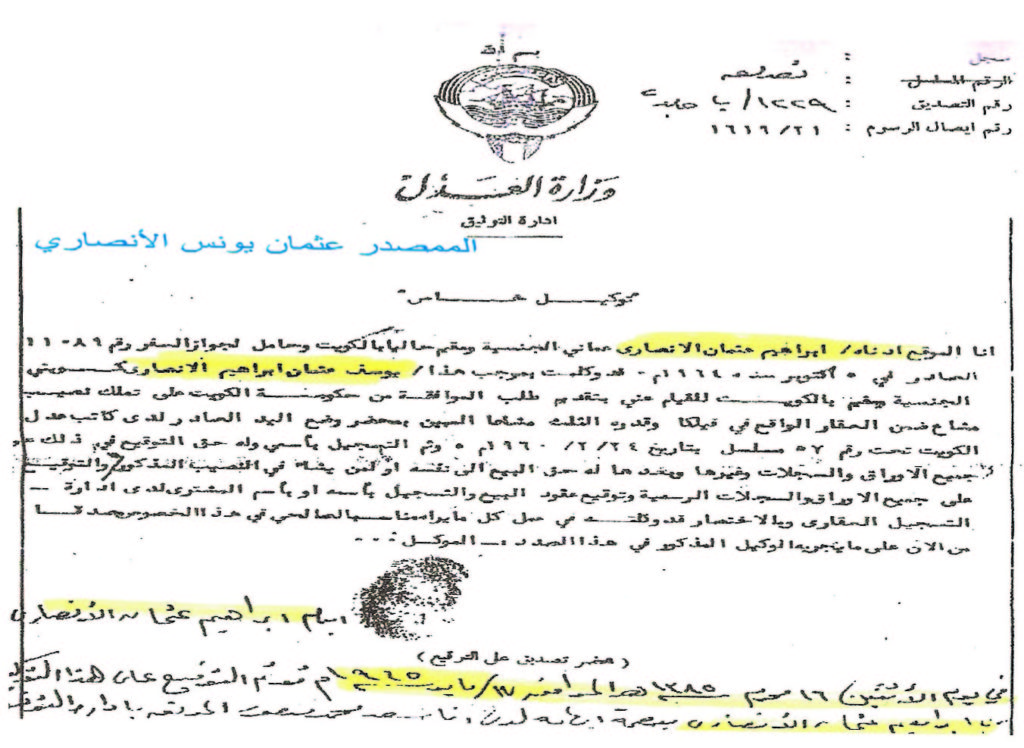 بسم الله
سجل :
الرقم المسلسل : تصديق
رقم التصديق : ١٢٢٩/
رقم ايصال الرسوم : ١٦١٩/٢١
وزارة العدل
ادارة التوثيق
الممصدر عثمان يونس الأنصاري
توكيل خاص
انا الموقع ادناه/ ابراهيم عثمان الانصارى عماني الجنسية ومقيم حاليا بالكويت وحامل لجواز السفر رقم ١١٠٨٩
الصادر في ٥ أكتوبر سنة ١٩٦٤م قد وكلت بموجب هذا/ يوسف عثمان ابراهيم الانصارى كويتي
الجنسية ومقيم بالكويت للقيام عني بتقديم طلب الموافقة من حكومة الكويت على تملك نصيب
مشاع ضمن العقار الواقع في فيلكا وقدره الثلث مشاعا المبين بمحضر وضع اليد الصادر لدى كاتب عدل
الكويت تحت رقم ٥٧ مسلسل بتاريخ ١٩٦٠/٢/٢٤م وتم التسجيل بأسمي وله حق التوقيع في ذلك على
جميع الاوراق والسجلات وغيرها وبعدها له حق البيع الى نفسه او لمن يشاء في النصيب المذكور والتوقيع
على جميع الاوراق والسجلات الرسمية وتوقيع عقود البيع والتسجيل بأسمه او بأسم المشترى لدى ادارة
التسجيل العقارى وبالاختصار قد وكلته في عمل كل ما يراه مناسبا لصالحي في هذا الخصوص مصدقا
من الان على ما يجريه الوكيل المذكور في هذا الصدد ـ الموكل
ابراهيم عثمان الأنصارى
(محضر تصديق على التوقيع)
في يوم الأثنين ١٦ محرم ١٣٨٥ هـ الموافق ١٧/مايو ١٩٦٥م تم التوقيع على هذا التوكيل
ابراهيم عثمان الأنصارى ببصمة ابهامه